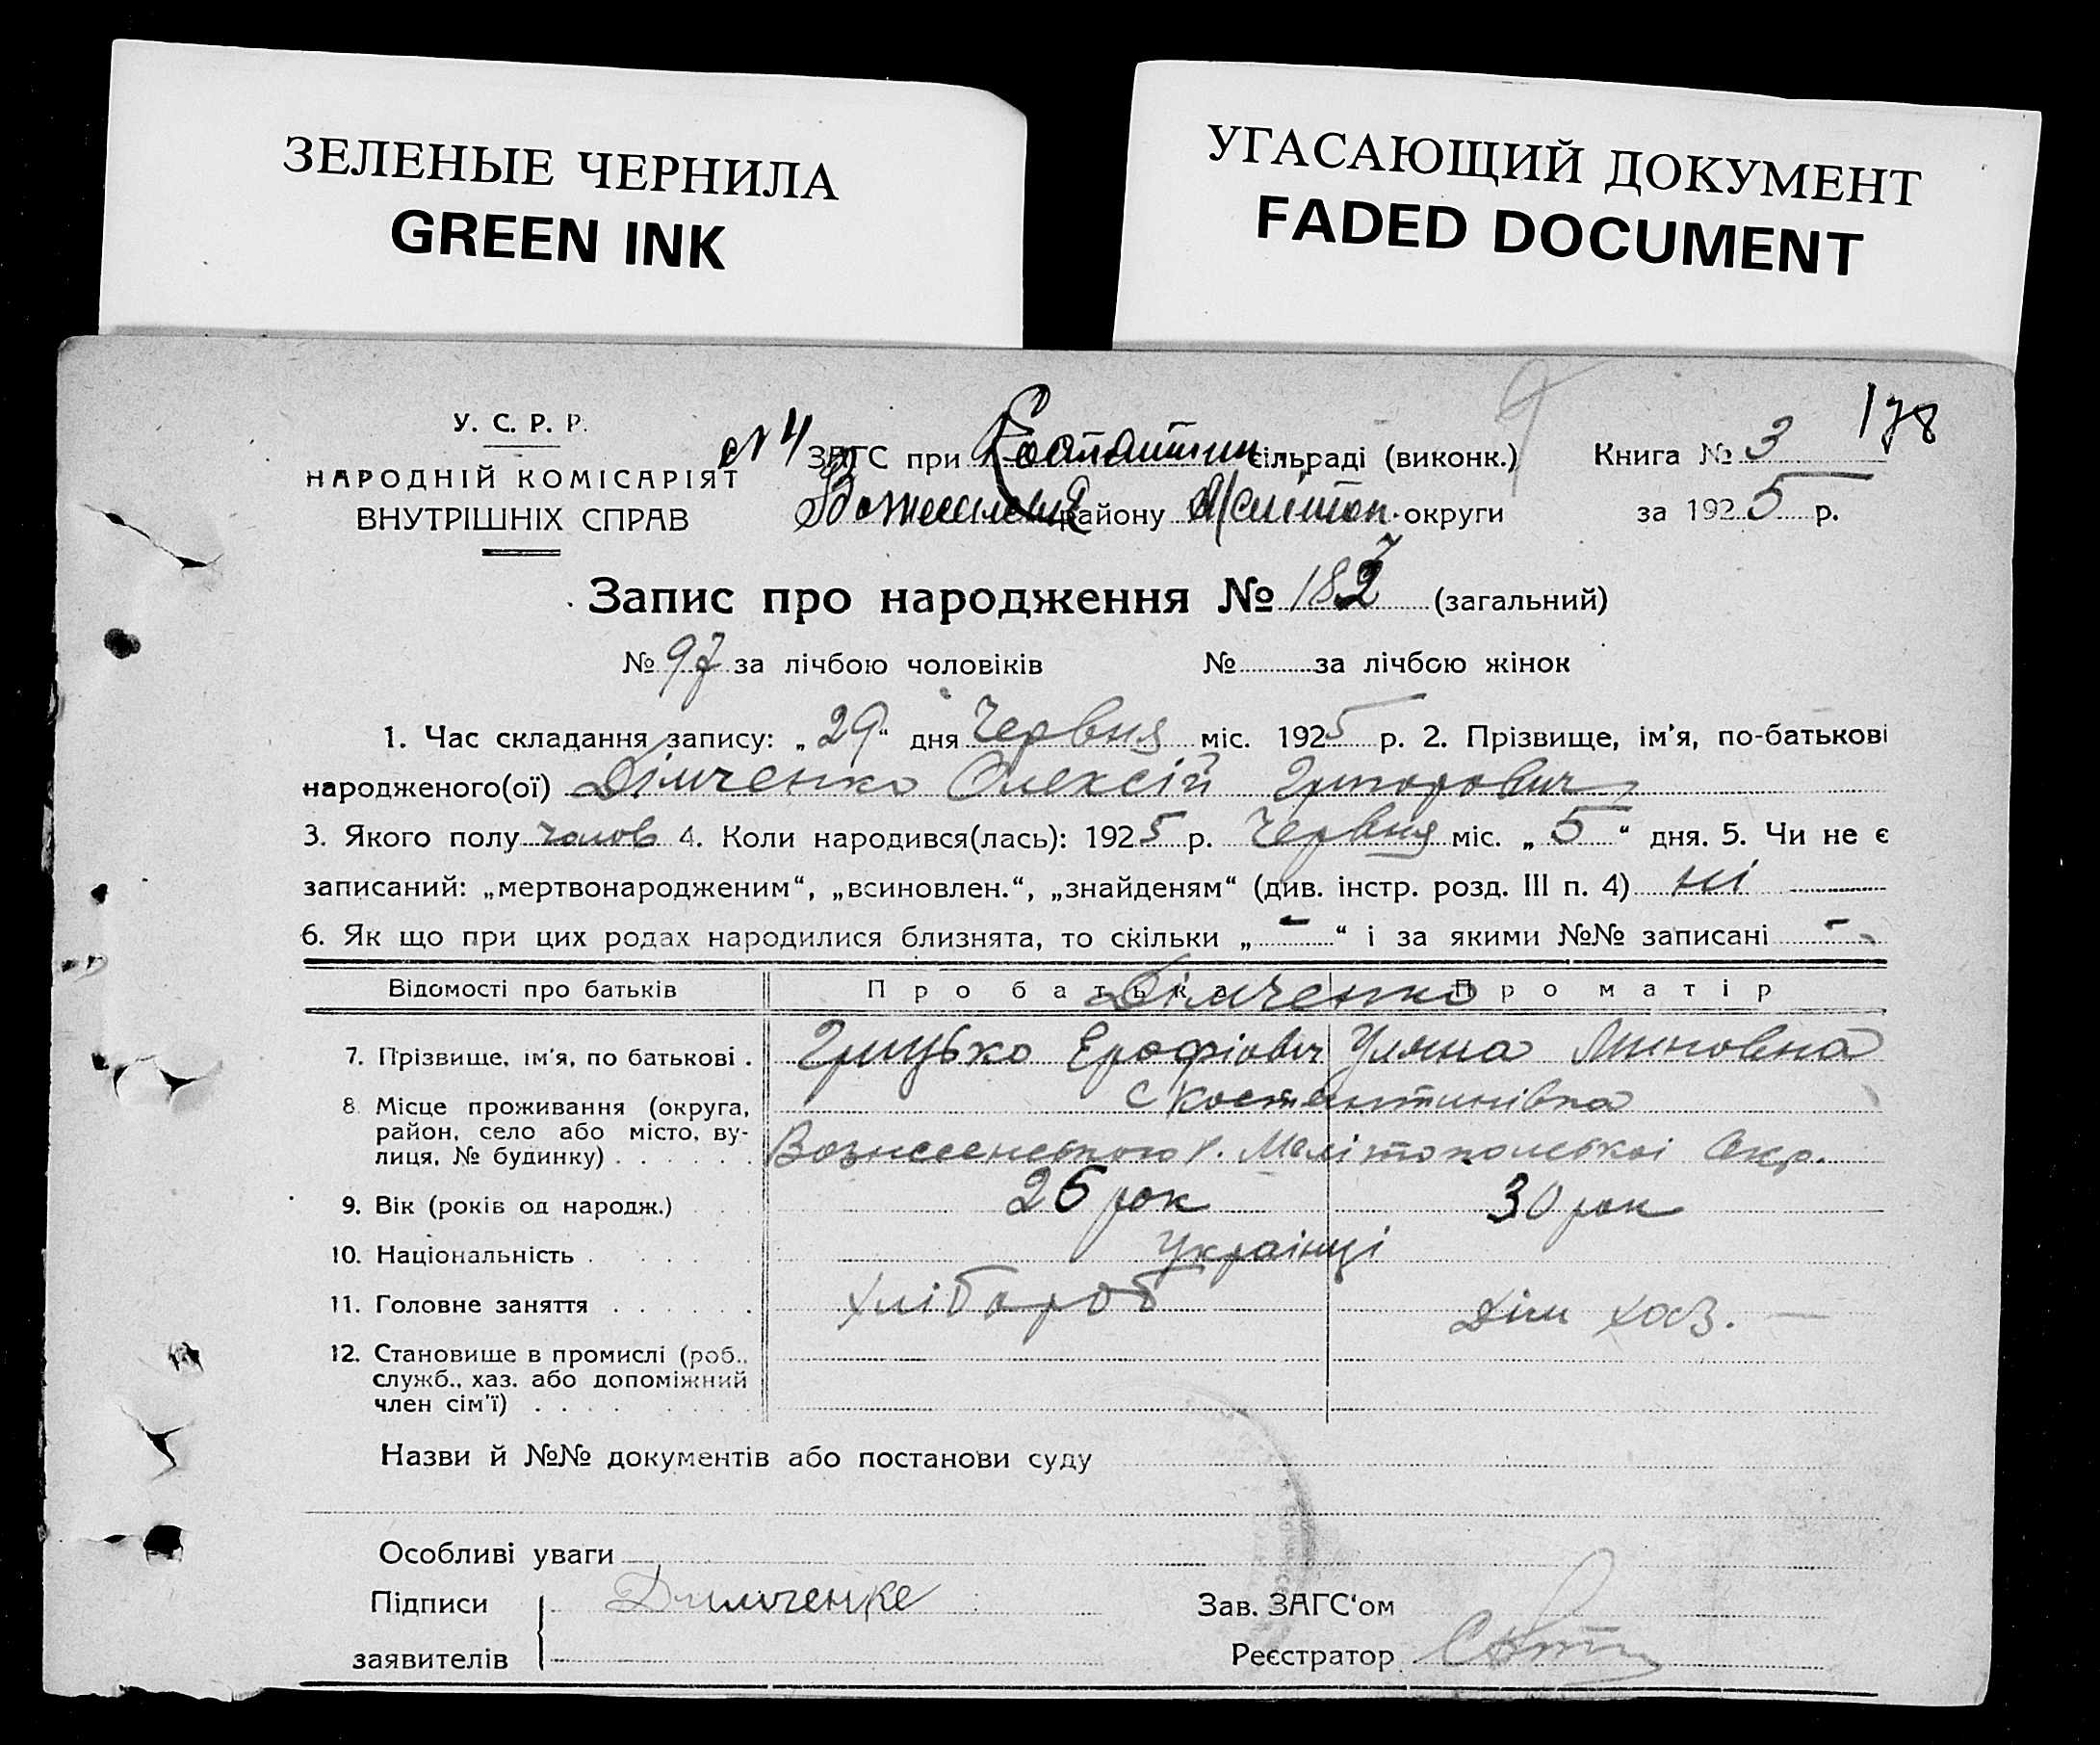 ЗЕЛЕНЫЕ ЧЕРНИЛА
GREEN INK
УГАСАЮЩИЙ ДОКУМЕНТ
FADED DOCUMENT
178
У. С. Р. Р.
НАРОДНІЙ КОМІСАРІЯТ
ВНУТРІШНІХ СПРАВ
№ 4 ЗАГС при сільраді (виконк.) Книга № 3
району округи за 1925 р.
Запис про народження № 182 (загальний)
№ 97 за лічбою чоловіків № за лічбою жінок
1. Час складання запису: „29“ дня Червня міс. 1925 р. 2. Прізвище, ім'я, по-батькові
народженого(ої) Дімченко Олексій Григорович
3. Якого полу чолов 4. Коли народився(лась): 1925 р. Червня міс. „5“ дня. 5. Чи не є
записаний: „мертвонародженим“, „всиновлен.“, „знайденям“ (див. інстр. розд. III п. 4) ні
6. Як що при цих родах народилися близнята, то скільки „-“ і за якими №№ записані -
Відомості про батьків Про батька Про матір
Дімченко
7. Прізвище, ім'я, по батькові . Грицько Ерофіович Уляна Миновна
8. Місце проживання (округа, с Костянтинівка
район, село або місто, ву-
лиця, № будинку) . . . . . . Вознесенського р. Мелітопольскоі Окр.
9. Вік (років од народж.) 26 рок 30 рок
10. Національність . . . . . Українці
11. Головне заняття . . . . . . Хлібороб Дім хаз.
12. Становище в промислі (роб.,
служб., хаз. або допоміжний
член сім'ї) . . . . . . . .
Назви й №№ документів або постанови суду
Особливі уваги
Підписи Димченке Зав. ЗАГС'ом
заявителів Реєстратор